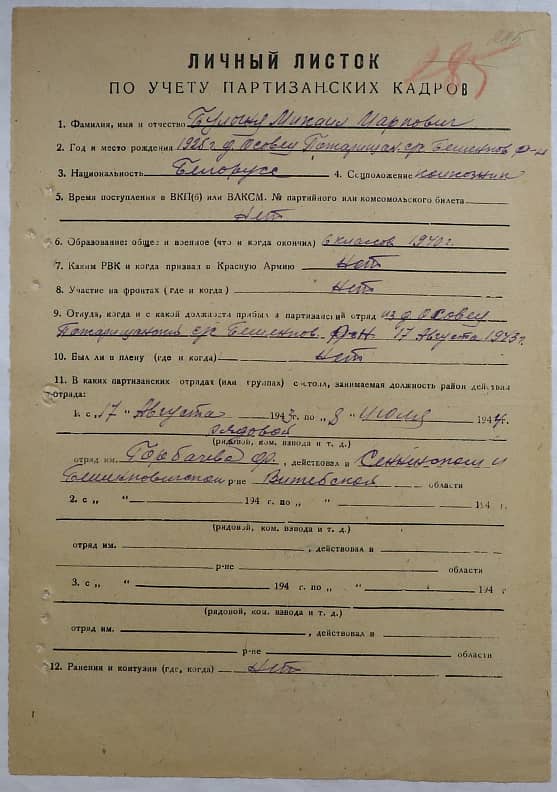 285
ЛИЧНЫЙ ЛИСТОК
ПО УЧЕТУ ПАРТИЗАНСКИХ КАДРОВ
1. Фамилия, имя и отчество Михаил Карпович
2. Год и место рождения 1926 г д. Осовец Бешенков. р-н
3. Национальность Белорусс 4. Соцположение колхозник
5. Время поступления в ВКП(б) или ВЛКСМ. № партийного или комсомольского билета
Нет
6. Образование: общее и военное (что и когда окончил) 6 классов 1940 г.
7. Каким РВК и когда призван в Красную Армию Нет
8. Участие на фронтах (где и когда) Нет
9. Откуда, когда и с какой должности прибыл в партизанский отряд из д. Осовец
с/с Бешенков. р-н 17 Августа 1943 г.
10. Был ли в плену (где и когда) Нет
11. В каких партизанских отрядах (или группах) состоял, занимаемая должность район действия
отряда:
1. с „17" Августа 1943 г. по „8" июля 1944 г.
рядовой
(рядовой, ком. взвода и т. д.)
отряд им. Горбачева , действовал в Сеннинском и
Бешенковичском р-не Витебской области
2. с „ " 194 г. по „ " 194 г.
(рядовой, ком. взвода и т. д.)
отряд им. , действовал в
р-не области
3. с „ " 194 г. по „ " 194 г
(рядовой, ком. взвода и т. д.)
отряд им. , действовал в
р-не области
12. Ранения и контузии (где, когда) Нет